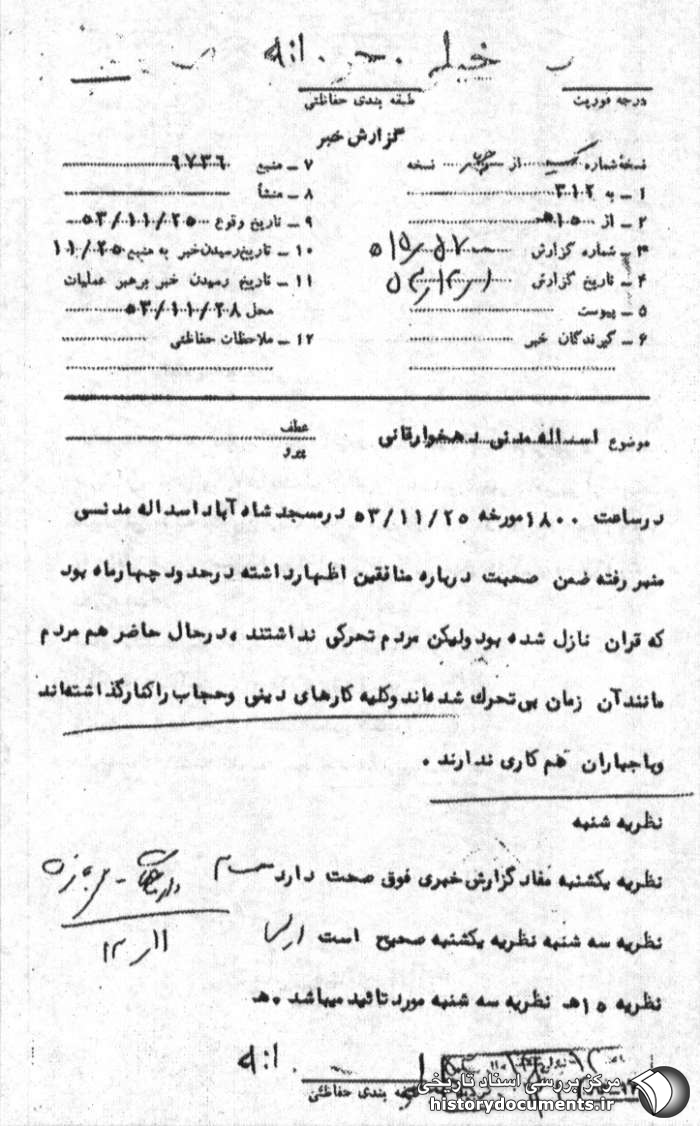 خیلی محرمانه
درجه فوریت
طبقه بندی حفاظتی
گزارش خبر
نسخه شماره یک از نسخه
۱ ـ به ۳۱۲
۲ ـ از ۱۵هـ
۳ ـ شماره گزارش
۴ ـ تاریخ گزارش
۵ ـ پیوست
۶ ـ گیرندگان خبر
۷ ـ منبع ۹۷۳۶
۸ ـ منشأ
۹ ـ تاریخ وقوع ۵۳/۱۱/۲۵
۱۰ ـ تاریخ رسیدن خبر به منبع ۱۱/۲۵
۱۱ ـ تاریخ رسیدن خبر برهبر عملیات
محل ۵۳/۱۱/۲۸
۱۲ ـ ملاحظات حفاظتی
موضوع اسداله مدنی دهخوارقانی
عطف
پیرو
درساعت ۱۸۰۰ مورخه ۵۳/۱۱/۲۵ درمسجد شاه آباد اسداله مدنسی
منبر رفته ضمن صحبت درباره منافقین اظهارداشته درحدود چهارماه بود
که قران نازل شده بود ولیکن مردم تحرکی نداشتند ٬ درحال حاضر هم مردم
مانند آن زمان بی تحرك شده اند وکلیه کارهای دینی وحجاب راکنارگذاشته اند
وباجباران هم کاری ندارند .
نظریه شنبه
نظریه یکشنبه مفاد گزارش خبری فوق صحت دارد
نظریه سه شنبه نظریه یکشنبه صحیح است
نظریه ۱۵هـ نظریه سه شنبه مورد تائید میباشد . هـ
طبقه بندی حفاظتی
مرکز بررسی اسناد تاریخی
historydocuments.ir